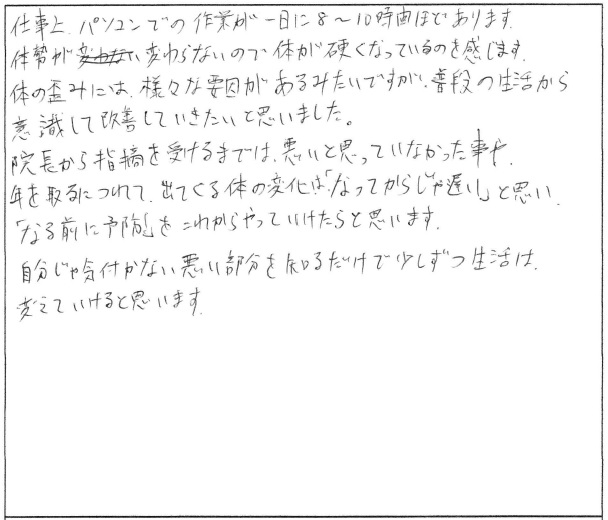 仕事上、パソコンでの作業が一日に8～10時間ほどあります。
体勢が変わらないので、体が硬くなっているのを感じます。
体の歪みには、様々な要因があるみたいですが、普段の生活から
意識して改善していきたいと思いました。
院長から指摘を受けるまでは、悪いと思っていなかった事や、
年を取るにつれて、出てくる体の変化は「なってからじゃ遅い」と思い、
「なる前に予防」を これからやっていけたらと思います。
自分じゃ気付かない悪い部分を知るだけで少しずつ生活は、
変えていけると思います。